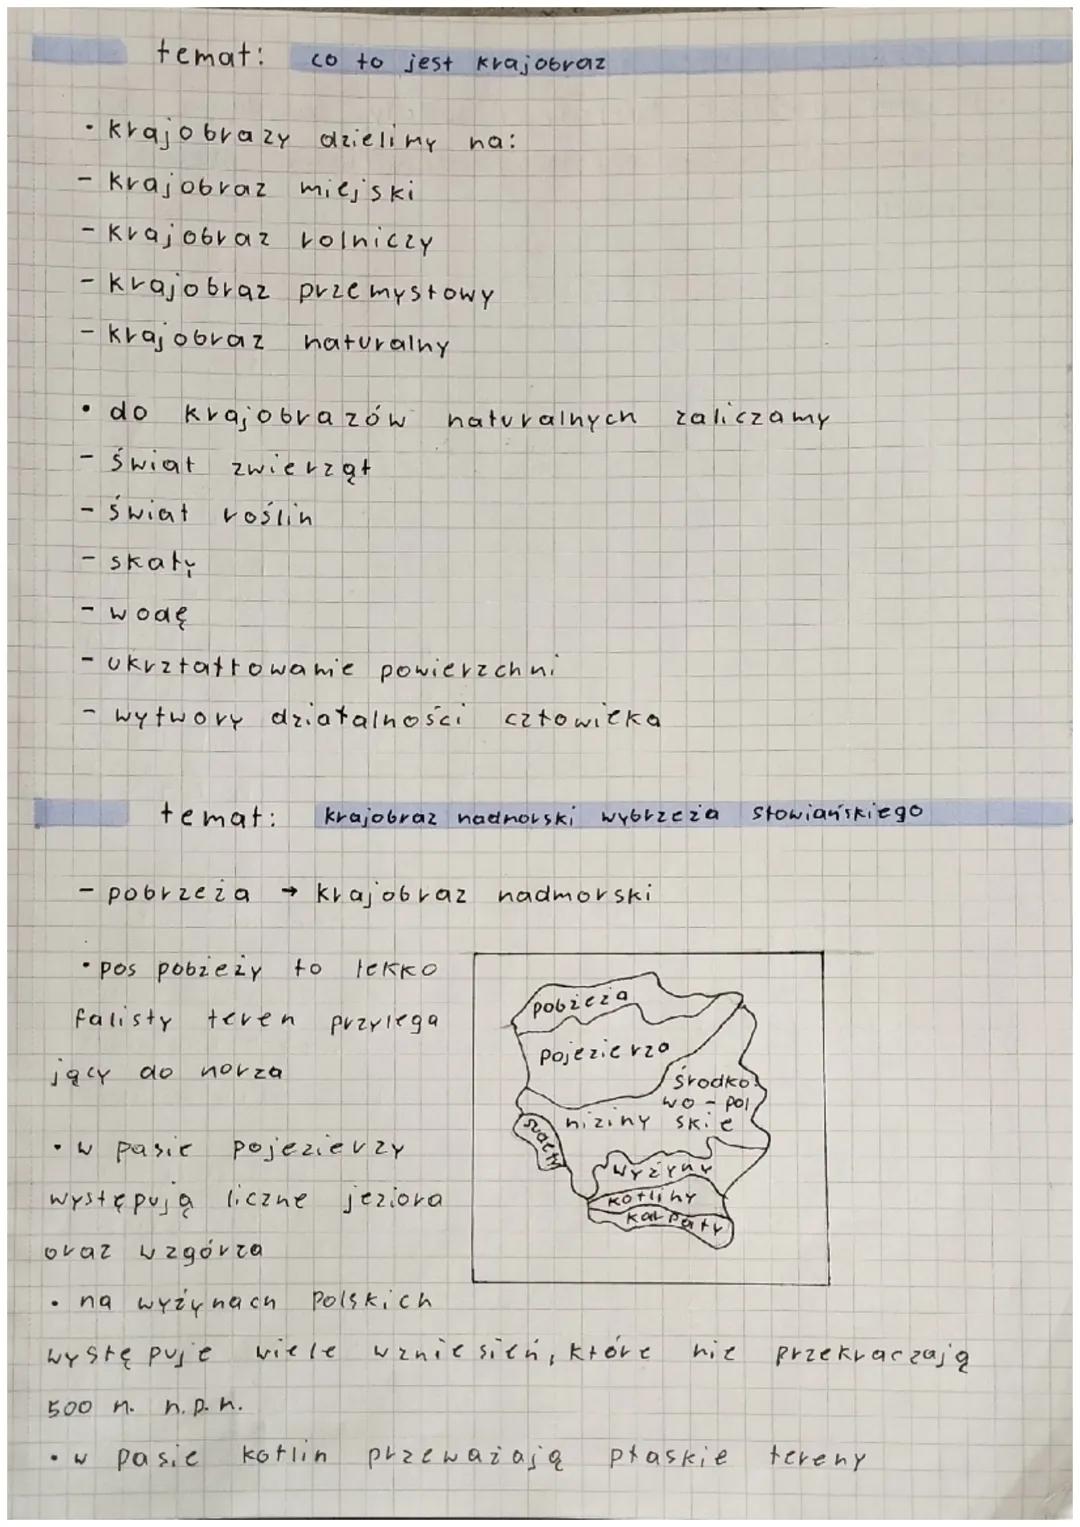 temat: co to jest krajobraz
• krajobrazy dzielimy na:
- krajobraz miejski
- krajobraz rolniczy
- krajobraz przemysłowy
- krajobraz naturalny
• do krajobrazów naturalnych zaliczamy
- świat zwierząt
- świat roślin
- skały
- wodę
- ukrztałtowanie powierzchni
- wytwory działalności człowieka
temat: krajobraz nadmorski wybrzeża słowiańskiego
- pobrzeża → krajobraz nadmorski
• pos pobżeży to lekko
falisty teren przylega
jący do morza
• w pasie pojezierzy
występują liczne jeziora
oraz wzgórza
• na wyżynach Polskich
występuje wiele wzniesień, które nie przekraczają
500 m. n.p.m.
• w pasie kotlin przeważają płaskie tereny
pobżeża
pojezierza
środko
wo - pol
niziny skie
wyżyny
kotliny
karpaty